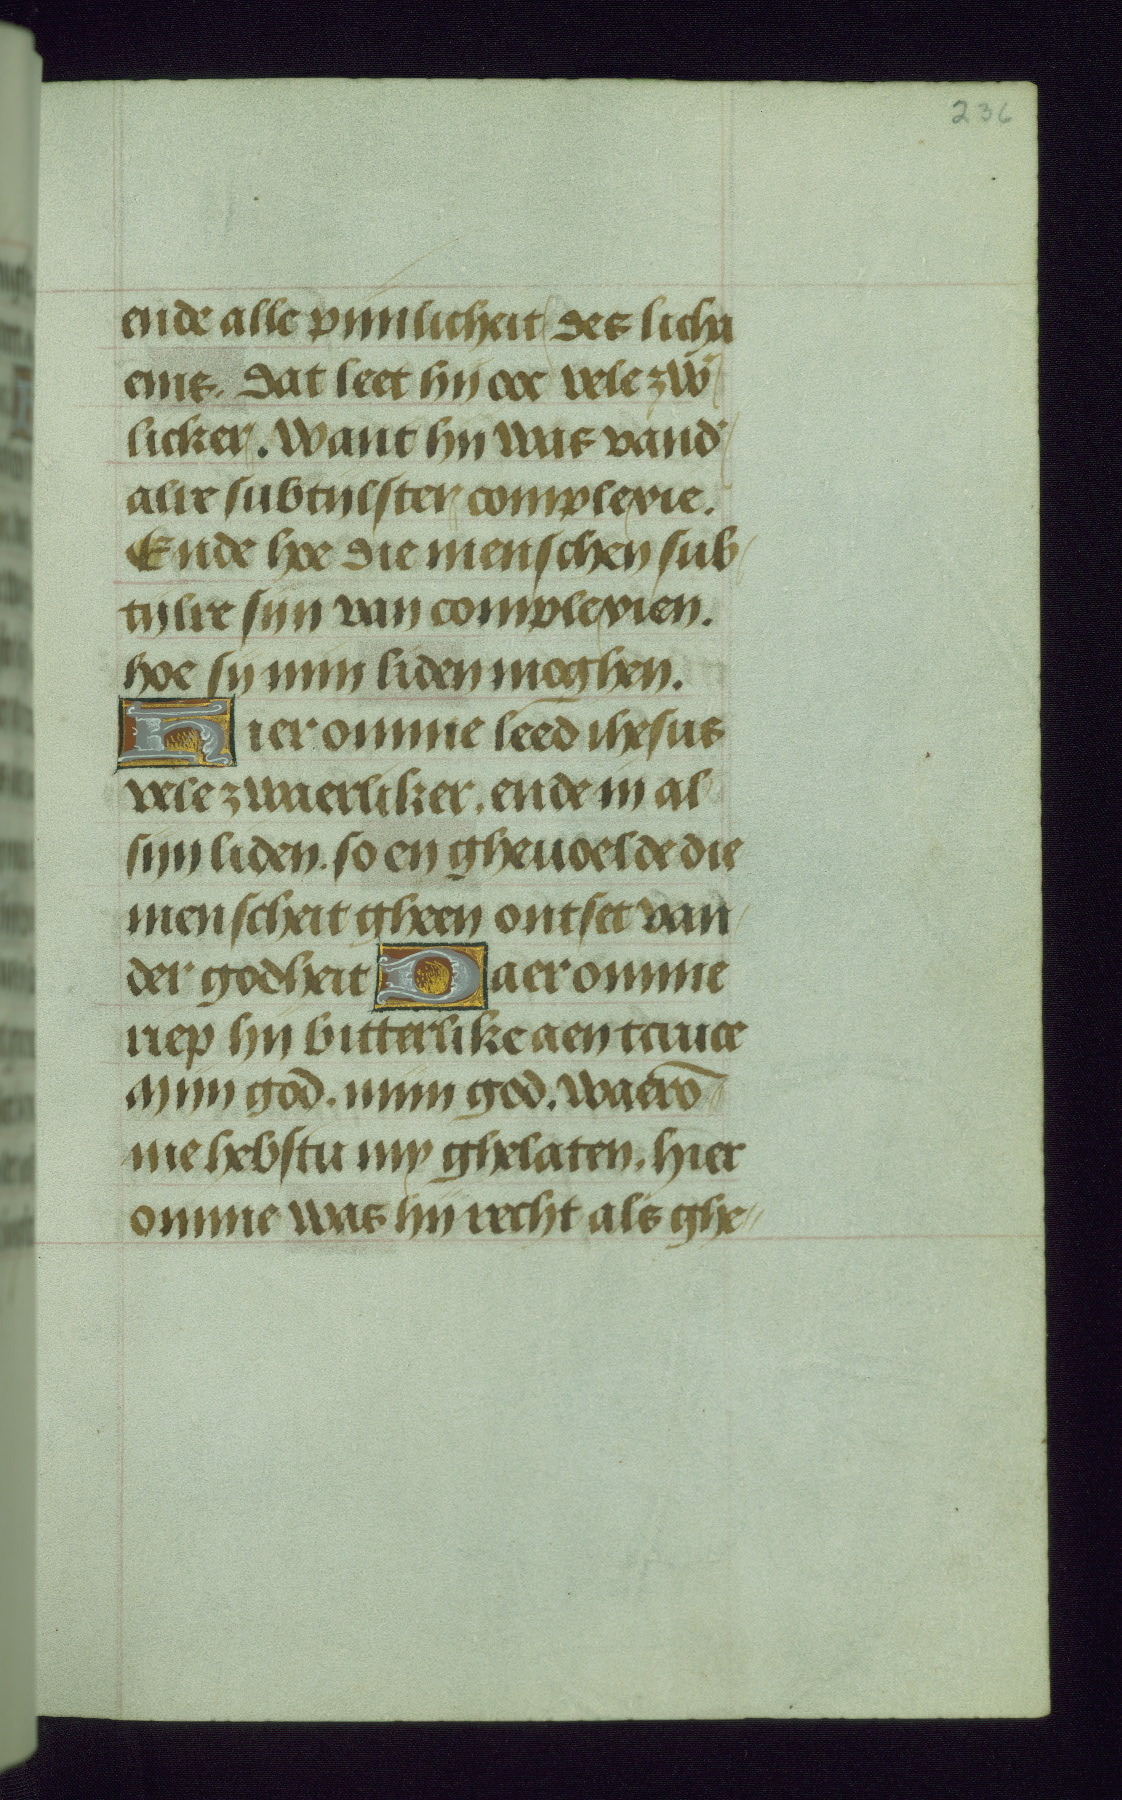 236
ende alle pijnlicheit des licha
ems. Dat leet hij oec vele zw̃
licker. Want hij was vand'
alre subtijlster complexie.
Ende hoe die menschen sub
tijlre sijn van complexien.
hoe sij min liden moghen.
Hier omme leed ihesus
vele zwaerliker. ende in al
sijn liden. so en ghevoelde die
menscheit gheen ontset van
der godheit Daer omme
riep hij bitterlike aent cruce
Mijn god. mijn god. waerō
me hebstu my ghelaten. hier
omme was hij recht als ghe